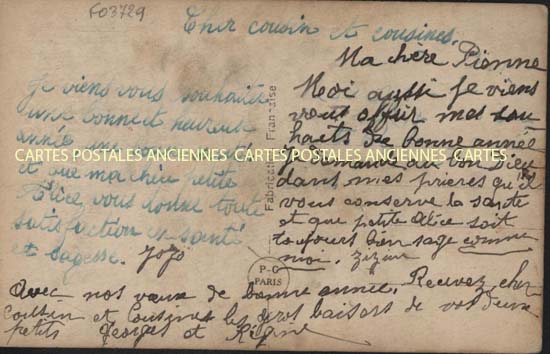 F03729
Cher cousin et cousines,
Je viens vous souhaiter
une bonne et heureuse
année
et que ma chère petite
Alice, vous donne toute
satisfaction en santé
et sagesse. Jojo
Ma chère Pienne
Moi aussi je viens
vous offrir mes sou
haits de bonne année
je demande au bon Dieu
dans mes prieres qu'il
vous conserve la santé
et que petite Alice soit
toujours bien sage comme
moi. Zizine
Avec nos vœux de bonne année. Recevez cher
cousin et cousines les gros baisers de vos deux
petits Georges et
Fabrication Française
P-C
PARIS
CARTES POSTALES ANCIENNES CARTES POSTALES ANCIENNES CARTES